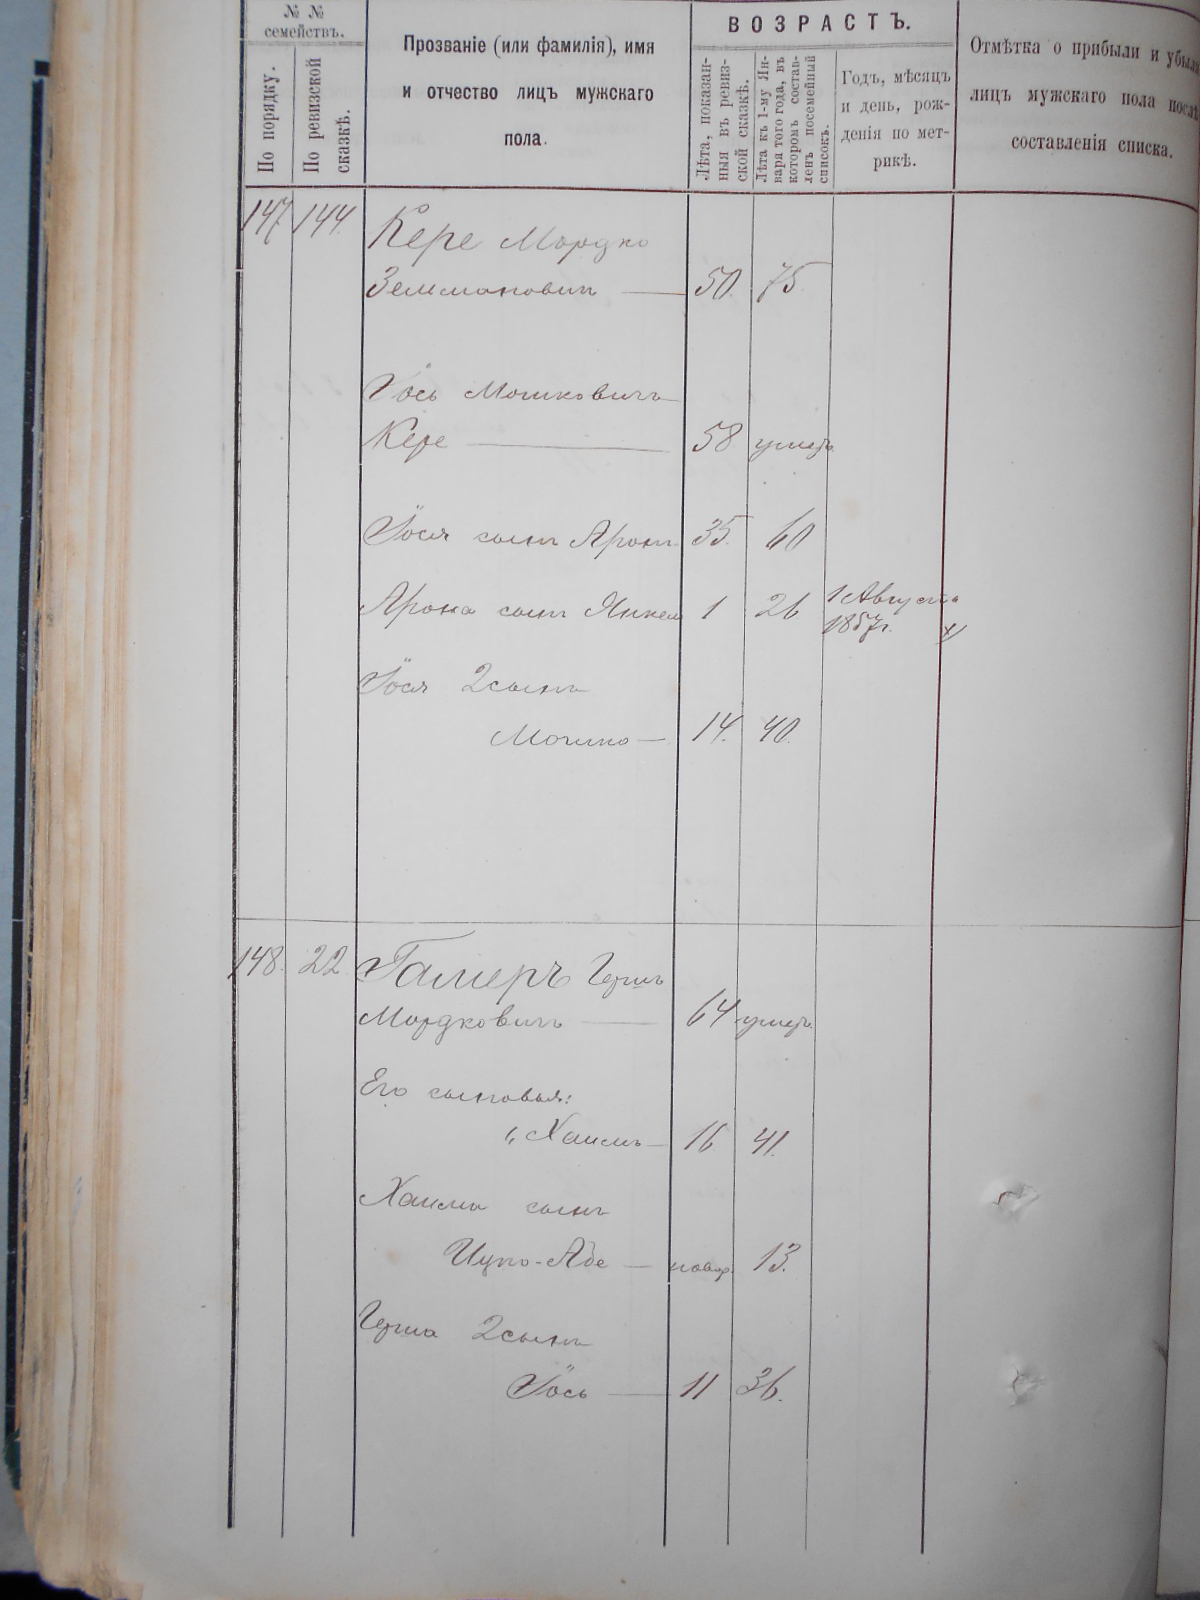 № №
семействъ.
По порядку.
По ревизской
сказкѣ.
Прозваніе (или фамилія), имя
и отчество лицъ мужскаго
пола.
ВОЗРАСТЪ.
Лѣта, показан-
ныя въ ревиз-
ской сказкѣ.
Лѣта къ 1-му Ян-
варя того года, въ
которомъ состав-
ленъ посемейный
списокъ.
Годъ, мѣсяцъ
и день, рож-
денія по мет-
рикѣ.
Отмѣтка о прибыли и убыли
лицъ мужскаго пола послѣ
составленія списка.
147 144. Кере Мордко
Зельмановичъ — 50. 75
Іось Мошковичъ
Кере — 58 умеръ
Іося сынъ Аронъ 35. 60
Арона сынъ Янкель 1 26 1 Августа
1857 г.
Іося 2 сынъ
Мошко — 14. 40.
148. 22. Гамеръ Гершъ
Мордковичъ — 64 умеръ
Его сыновья:
1, Хаимъ — 16 41.
Хаима сынъ
Ицко-Абе — новор. 13.
Герша 2 сынъ
Іось — 11 36.